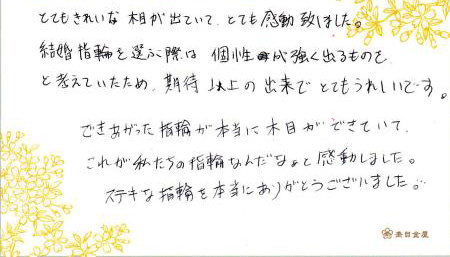 とてもきれいな木目が出ていて、とても感動致しました。
結婚指輪を選ぶ際は個性が強く出るものを
と考えていたため、期待以上の出来でとてもうれしいです。
できあがった指輪が本当に木目ができていて、
これが私たちの指輪なんだなぁと感動しました。
ステキな指輪を本当にありがとうございました。
杢目金屋